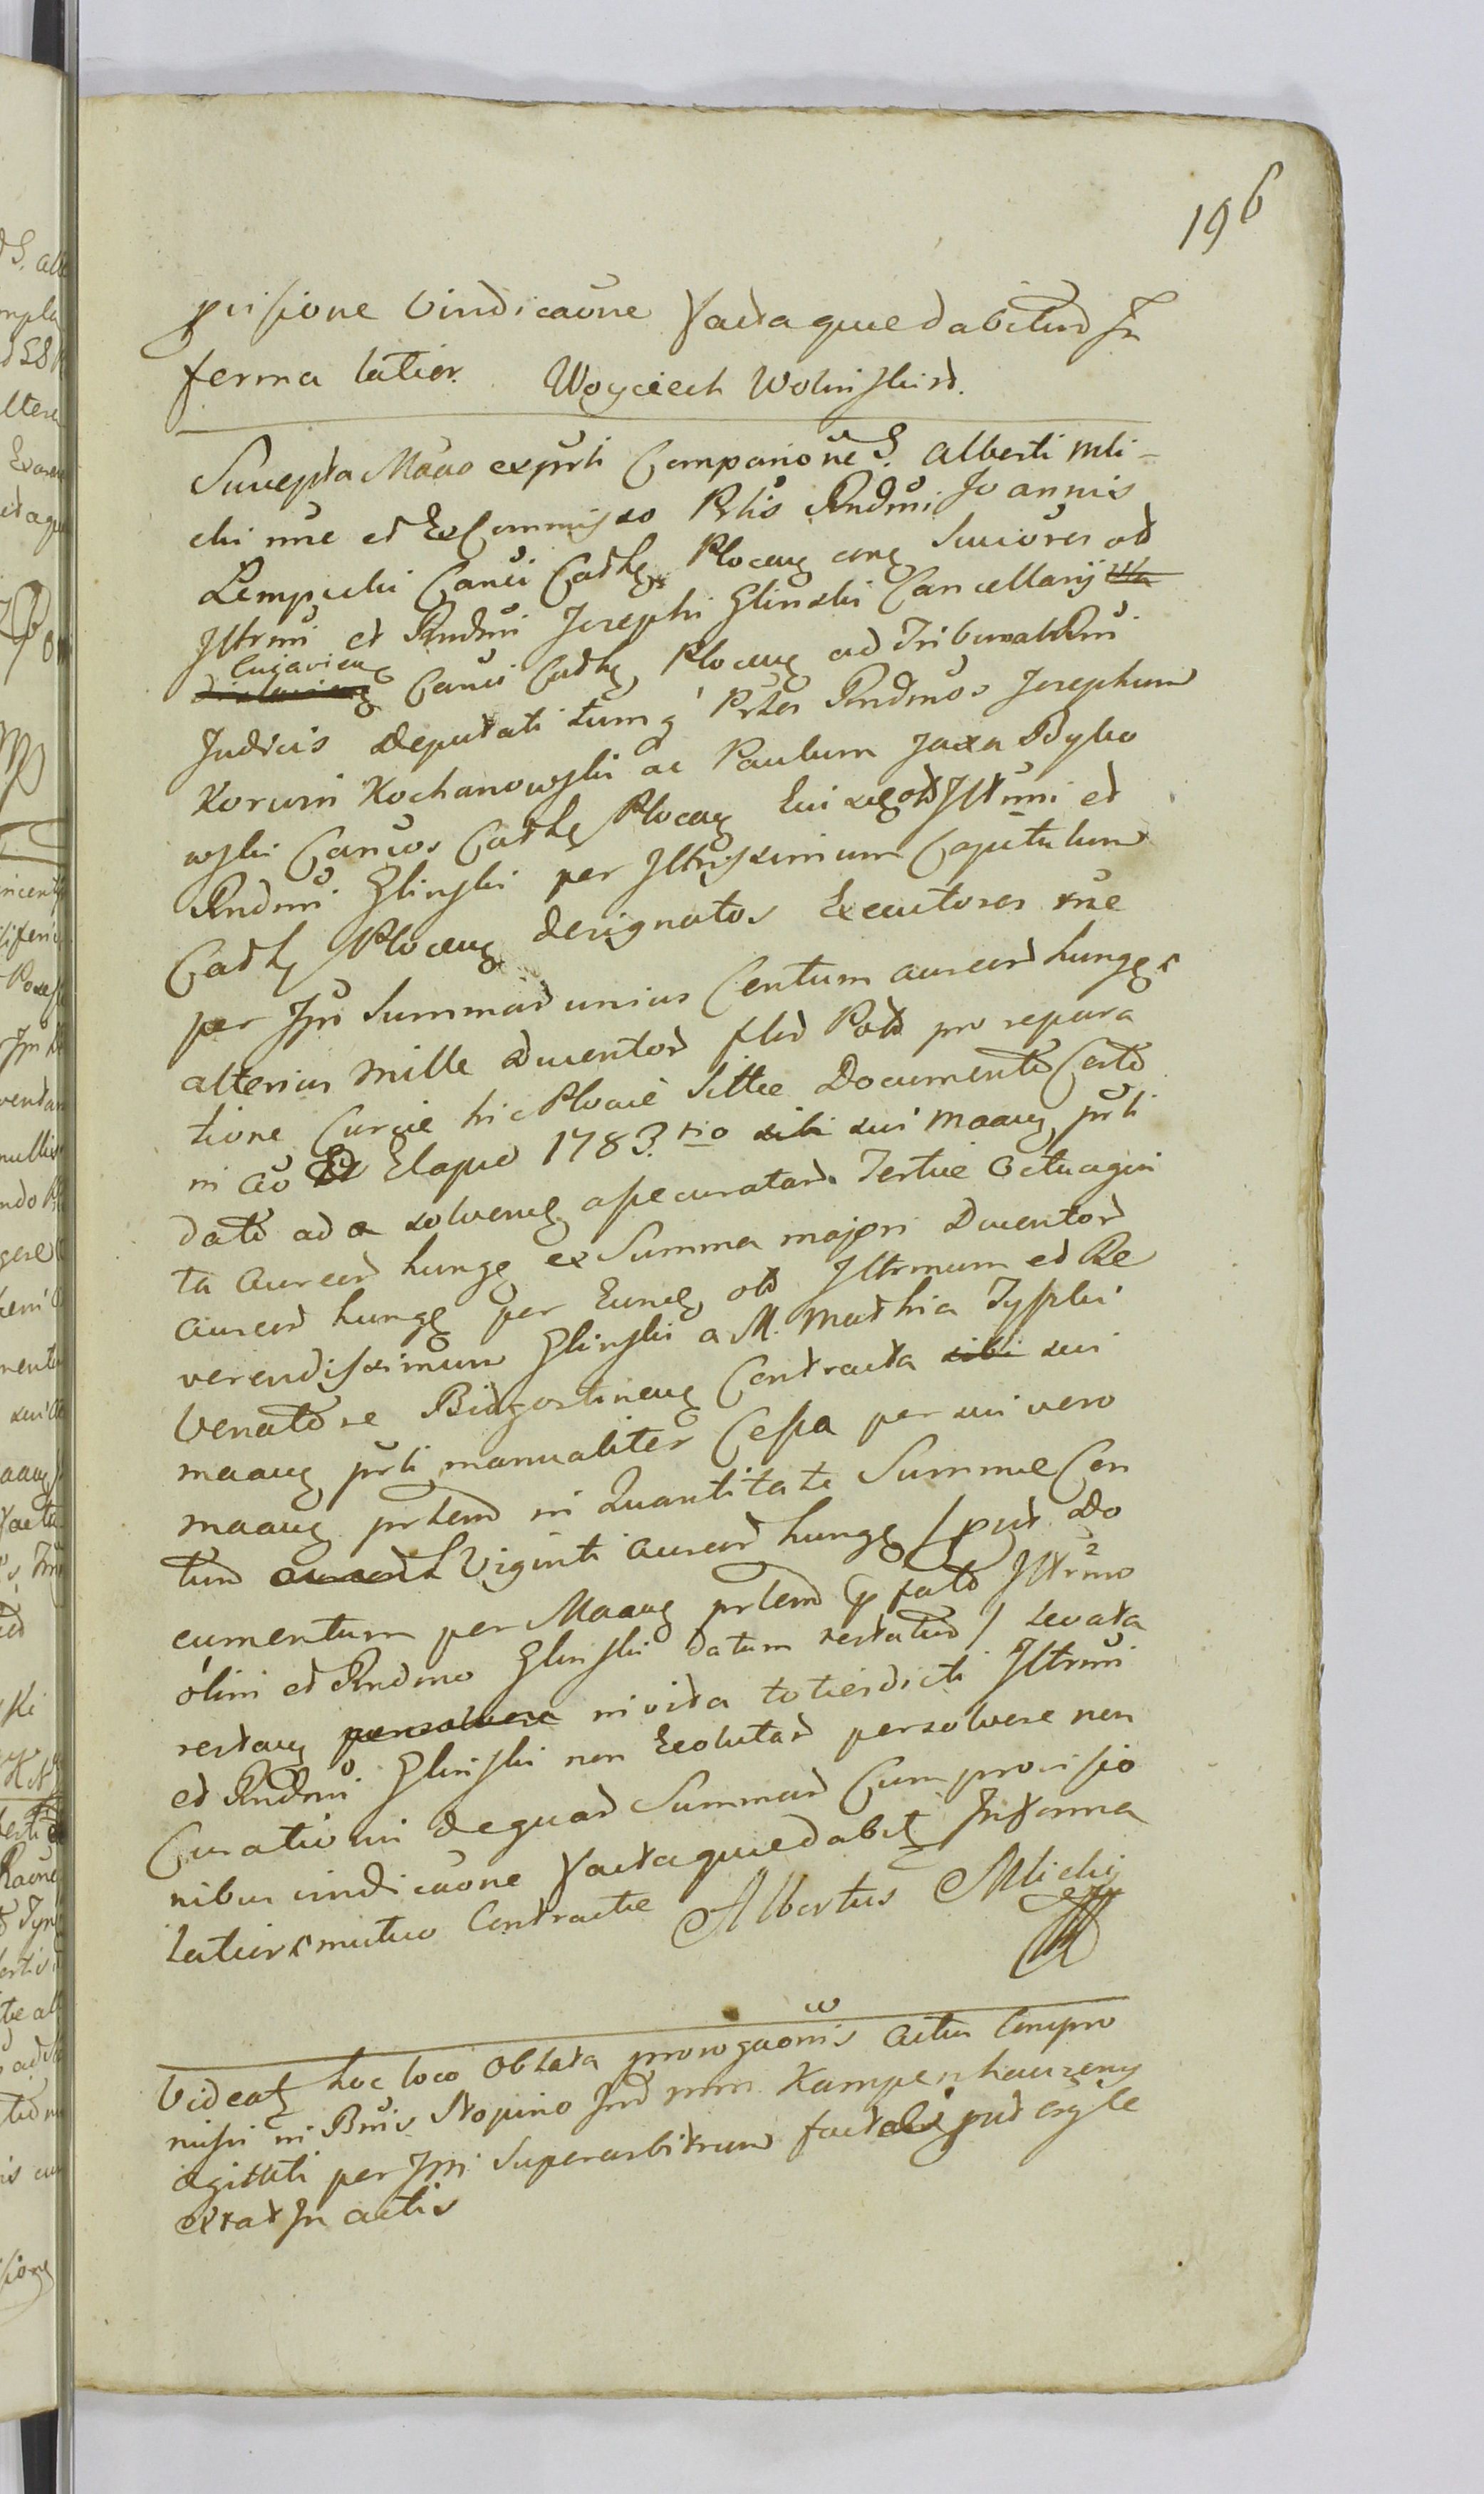 196
pcisione vindicaone facta quie dabitur In
forma latior. Woyciech Wolinski
Suscepta Mao ex prti Comparione G. Alberti Mli-
cki me et Ex Commisso Prlis Rndmi Joannis
Lempicki Canci Cathg Plocen Senioris ad
Illrmi et Rndmi Josephi Glinski Cancellarij
Cujavien Canci Cathg Plocen ad Tribunal Rni
Judicis Deputati tum q Prles Rndmos Josephum
Korwin Kochanowski ac Paulum Jaxa Bybo
wski Cancos Cathg Plocen Illrmi et
Rndmi Glinski per Illrissimum Capitulum
Cathg Plocen designatos Executores me
per Ips Summar unius Centum aureor hungg
alterius mille Ducentor flor Pol pro repara
tione Curiae hic Plociae sittae Documento Certo
in Ao Elapso 1783.tio sibi sui Maang prti
dato ad solveng assecuratar. Tertiae Octuagin
ta Aureor hungg ex Summa majori Ducentor
Aureor hungg per Eund ol Illrmum et Re
verendissimum Glinski a M. Mathia Typski
Venatore Bidgostineng Contracta sibi sui
maang prti manualiter Cessa per sui vero
maang prlem in Quantitate Summae Cen
tum Viginti aureor hungg / put Do
cumentum per Maang prlem pfato Illrmo
olim et Rndmo Glinski datum testatur / Levata
restang persolvere in vita totiesdicti Illrmi
et Rndmi Glinski non Exolutar persolvere non
Curatio in de quar Summar Cum provisio
nibus vindicaone facta quie dabit In forma
latiori mutuo Contractae Albertus Mlicki
Videat hoc loco Oblata prorogaonis actus Compro
missi in Bnis Stopino Int mm Kampenhauzeny
agittati per Im Superarbitrum fact put
extat In actis